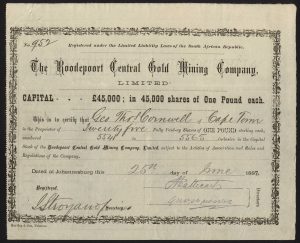 No. 952 Registered under the Limited Liability Laws of the South African Republic.
The Roodepoort Central Gold Mining Company,
LIMITED
CAPITAL £45,000; in 45,000 shares of One Pound each.
This is to certify that Geo Thos Cornwell of Cape Town
is the Proprietor of Twenty five Fully Paid-up Shares of ONE POUND sterling each,
numbered 5541 5565 inclusive in the Capital
Stock of the Roodepoort Central Gold Mining Company, Limited, subject to the Articles of Association and Rules and
Regulations of the Company.
Dated at Johannesburg this 25th day of June 1887.
Registered.
Directors
Secretary.